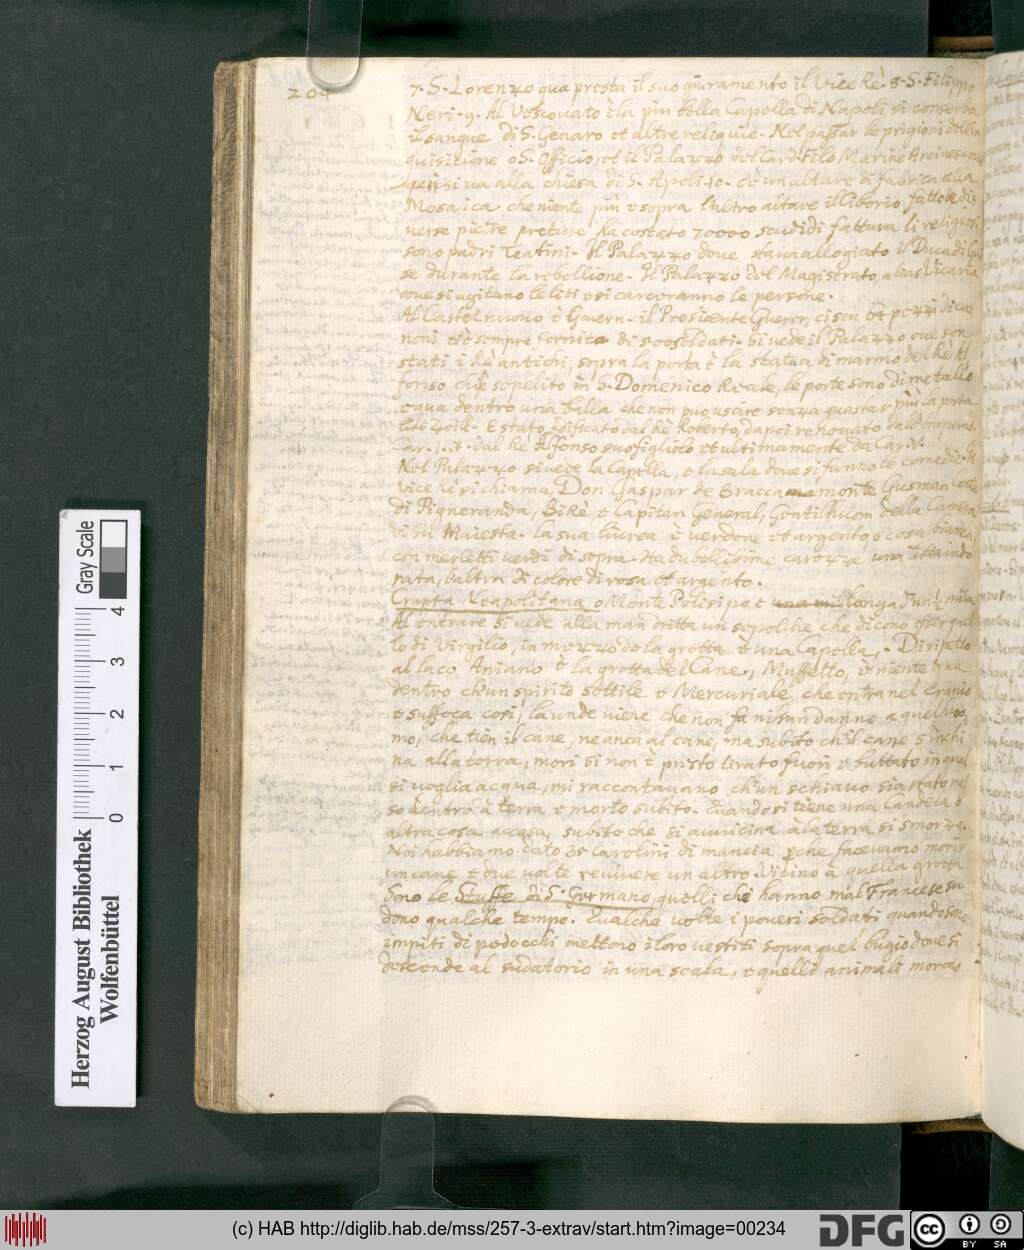 204
7. S. Lorenzo qua presta il suo giuramento il Vice Rè. 8. S. Filippo
Neri. 9. Al Vescovato è la più bella Capella di Napoli, si conserba
il sangue di S. Genaro et altre reliquie. Nel passar le prigioni dell'In
quisitione o S. Officio, et il Palazzo del Card. Filo Marine Arcivescovo
quì si va alla chiesa di S. Apoli. 10. c'è un altare di fabrica alla
Mosaica che niente più e sopra l'altro altare il Ciborio fatto di di
verse pietre pretiose ha costato 70000 scudi di fattura li religiosi
sono padri Teatini. Il Palazzo dove stava allogiato il Duca di Gui
se durante la rebellione. Il Palazzo del Magistrato, alias Vicaria
ove si agitano le liti e si carceranno le persone.
Al Castel nuovo è Govern. il Presidente Guerr, ci son pezzi di ca
noni è sempre fornito di 500 soldati. Si vede il Palazzo ove son
stati i Rè antichi, sopra la porta è la statua di marmo del Rè Al
fonso ch'è sepelito in S. Domenico Reale, le porte sono di metallo
e qua dentro una balla che non può uscire senza guastar più la porta
E stato edificato dal Rè Roberto, dapoi renovato dall'Imperat.
Car. I. it. dal Rè Alfonso suo figliolo et ultimamente da Car. V.
Nel Palazzo si vede la Capella, e la sala dove si fanno le comedie. Il
Vice Rè si chiama, Don Gaspar de Braccamonte Gusman conte
di Pigneranda, Bi Rè, e Capitan General, Gentilhuom della Camera
di sul Maiesta. la sua liurea è verdone et argento, o cosa bianca
con merletti verdi di sopra. Ha du bellissime carozze una tutta indo
rata, e altra di colore di rosa et argento.
Crypta Neapolitana o Monte Posilipo è longa d'un ½ milia
Al entrare si vede alla man dritta un sepolchro che dicono esser quel
lo di Virgilio, in mezzo de la grotta è una Capella,. Dirispetto
al laco Aniano è la grotta del Cane, Muffetto, e niente hà
dentro ch'un spirito sottile e Mercuriale che entra nel cranio
e suffoca così, la unde viene che non fa nissun danno a quel huo,
mo, che tien il cane, ne anca al cane, ma subito ch'il cane s'inchi
na alla terra, mori si non è presto levato fuori e buttato in qual
si voglia acqua, mi raccontavano ch'un schiavo sia stato me
so dentro à terra e morto subito. Quando si tiene una Candela o
altra cosa accesa, subito che si avvicina à la terra si smorza.
Noi habbiamo dato 35 Carolini di mancia p che facevamo morir
un cane e due volte revivere un altro. Vicino a quella grotta
Sono le Stuffe di S. Germano, quelli che hanno mal Francese su
dono qualche tempo. Qualche volte i poveri soldati quando sono
impiti di pedocchi mettono i loro vestiti sopra quel bugio dove si
descende al sudatorio in una scala, e quelli animali morono
Herzog August Bibliothek
Wolfenbüttel
Gray Scale
0 1 2 3 4
(c) HAB http://diglib.hab.de/mss/257-3-extrav/start.htm?image=00234
DFG
cc BY SA